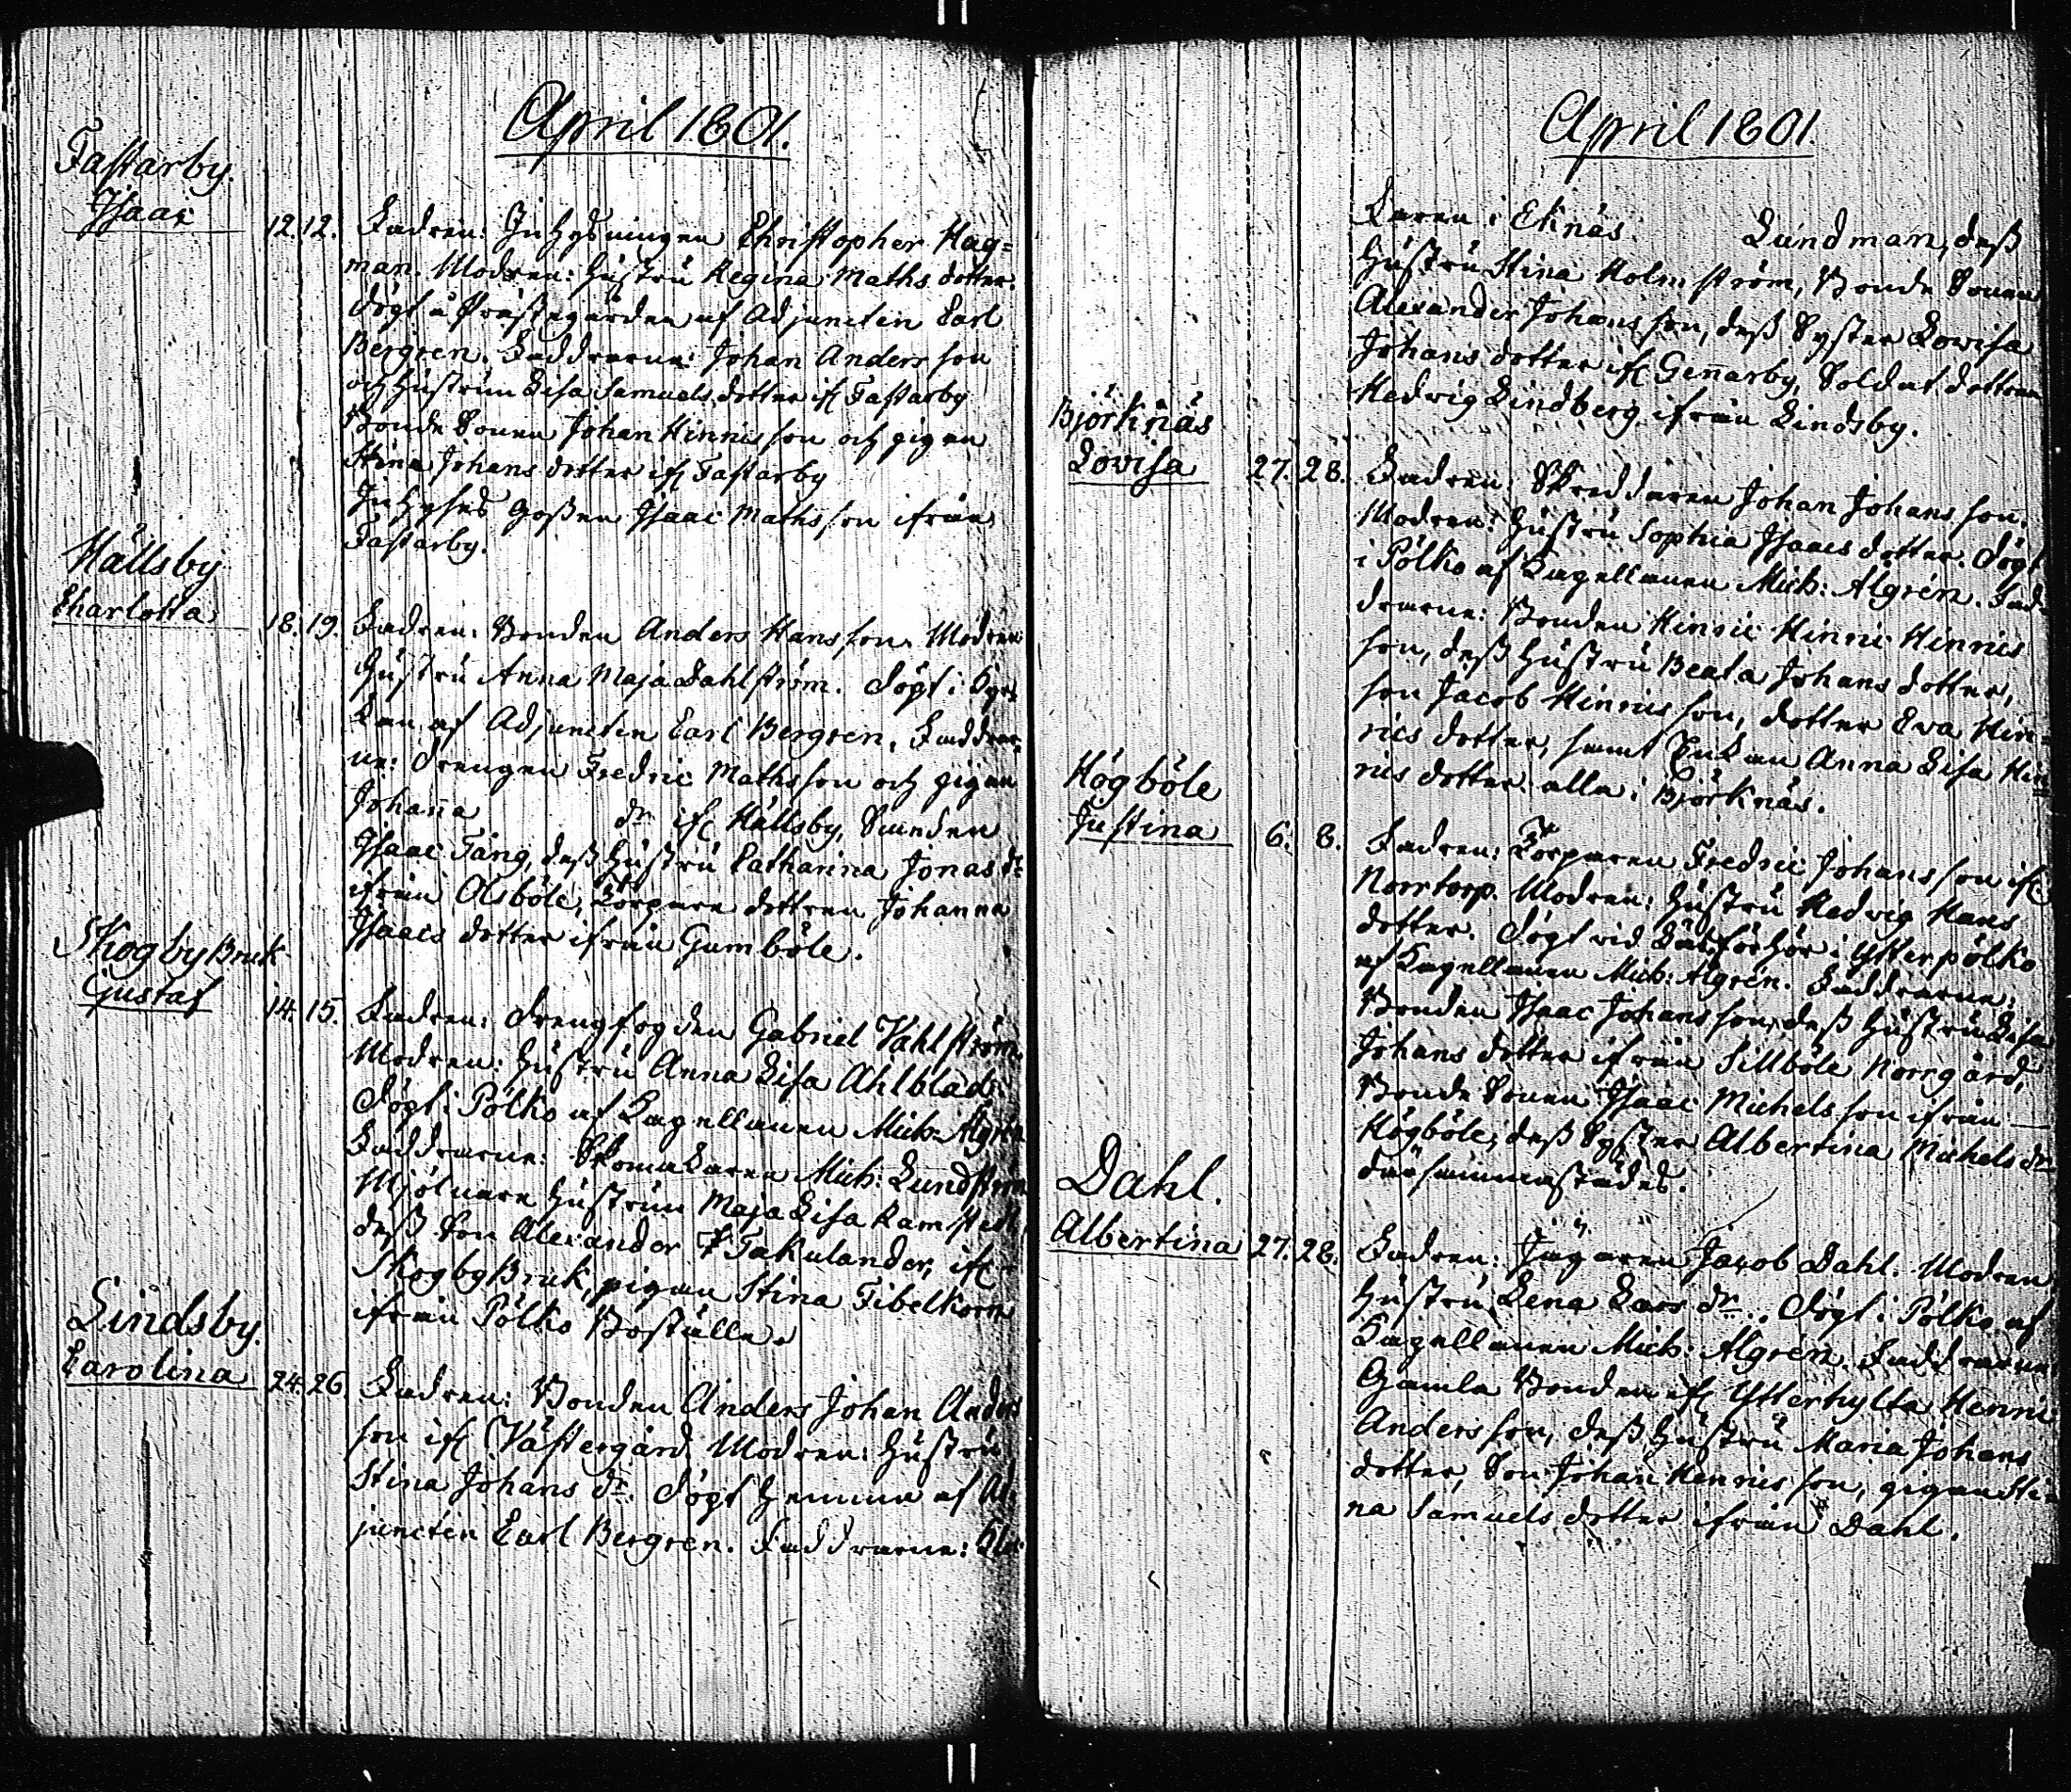 April 1801.
Fastarby.
Isaac
12. 12. Fadren: Inhysningen Christopher Hag=
man. Modren: Hustru Regina Maths dotter.
döpt i Prästegården af Adjuncten Carl
Bergren. Faddrarne: Johan Anders son
och hustrun Lisa Samuels dotter ifr Fastarby
Bonde Sonen Johan Hinrics son och pigan
Stina Johans dotter ifr Fastarby
Inhyses Gossen Isaac Maths son ifrån
Fastarby.
Hällsby
Charlotta
18. 19. Fadren: Bonden Anders Hans son. Modren
Hustru Anna Maja Dahlström. döpt i Kyr=
kan af Adjuncten Carl Bergren. Faddrar
ne: drengen Fredric Maths son och pigan
Johana dr ifr Hällsby, Smeden
Isaac Tång, dess hustru Catharina Jonas dr
ifrån Olsböle, Torpare dottren Johanna
Isaacs dotter ifrån Gumböle.
Skogby Bruk
Gustaf
14. 15. Fadren: Drengfogden Gabriel Vahlström.
Modren: Hustru Anna Lisa Ahlblad.
döpt i Pölko af Capellanen Mich: Algrén
Faddrarne: Skomakaren Mich: Lundström
Mjölnare hustrun Maja Lisa Ramstedt,
dess Son Alexander Takulander, ifr
Skogby Bruk, pigan Stina Fibelkorn
ifrån Pölko Boställe.
Lindsby.
Carolina
24. 26. Fadren: Bonden Anders Johan Anders
son ifr Västergård Modren: Hustru
Stina Johans dr. döpt hemma af Ad=
juncten Carl Bergren. Faddrarne:
April 1801.
karen i Eknäs Lundman, dess
Hustru Stina Holmström, Bonde Sonen
Alexander Johans son, dess Syster Lovisa
Johans dotter ifr Genarby, Soldat dottren
Hedvig Lindberg ifrån Lindsby.
Björknäs
Lovisa
27. 28. Fadren: Skreddaren Johan Johans son.
Modren: Hustru Sophia Isaacs dotter. döpt
i Pölko af Capellanen Mich: Algrén. Fad=
drarne: Bonden Hinric Hinric Hinrics
son, dess hustru Beata Johans dotter,
son Jacob Hinrics son, dotter Eva Hin=
rics dotter, samt Enkan Anna Lisa Hin=
rics dotter alla i Björknäs.
Högböle
Justina
6. 8. Fadren: Torparen Fredric Johans son ifr
Norrtorp. Modren: Hustru Hedvig Hans
dotter. döpt vid Läseförhör i Ytterpölko
af Capellanen Mich: Algrén. Faddrarne:
Bonden Isaac Johans son, dess hustru Lisa
Johans dotter ifrån Sillböle Norrgård,
Bonde Sonen Isaac Michels son ifrån
Högböle, dess Syster Albertina Michels dr
därsammastädes.
Dahl.
Albertina
27. 28. Fadren: Jägaren Jacob Dahl. Modren
Hustru Lena Lars dr. döpt i Pölko af
Capellanen Mich: Algrén. Faddrarne
Gamla Bonden ifr Ytterhylta Henric
Anders son, dess hustru Maria Johans
dotter, Son Johan Henrics son, pigan Sti=
na Samuels dotter ifrån Dahl.